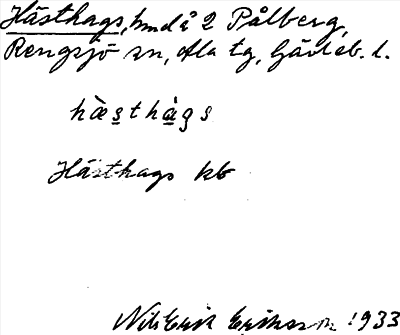 Hästhags, hmd å 2 Pålberg,
Rengsjö sn, Ala tg, Gävleb. l.
hæ̀sthàgs
Hästhags kb
Nils Erik Eriksson 1933